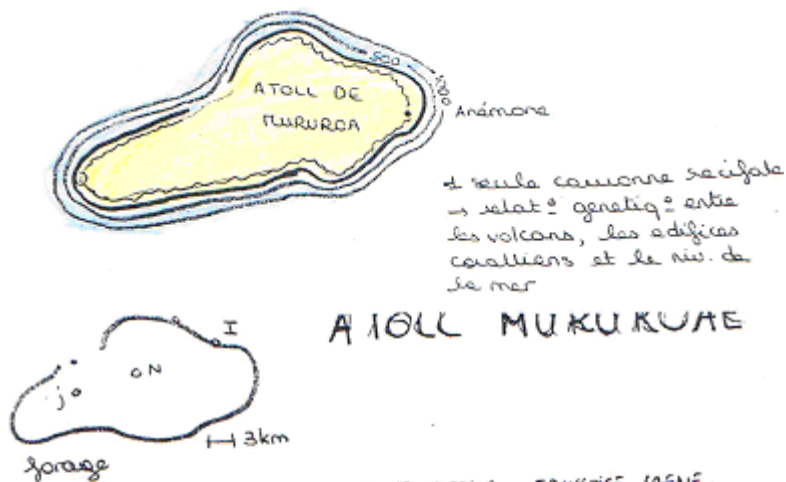 500
1000
ATOLL DE
MURUROA
Anémone
1 seule couronne récifale
→ relat° genetiq° entre
les volcans, les edifices
coralliens et le niv. de
la mer
ATOLL MURUROAE
I
N
j
3km
forage